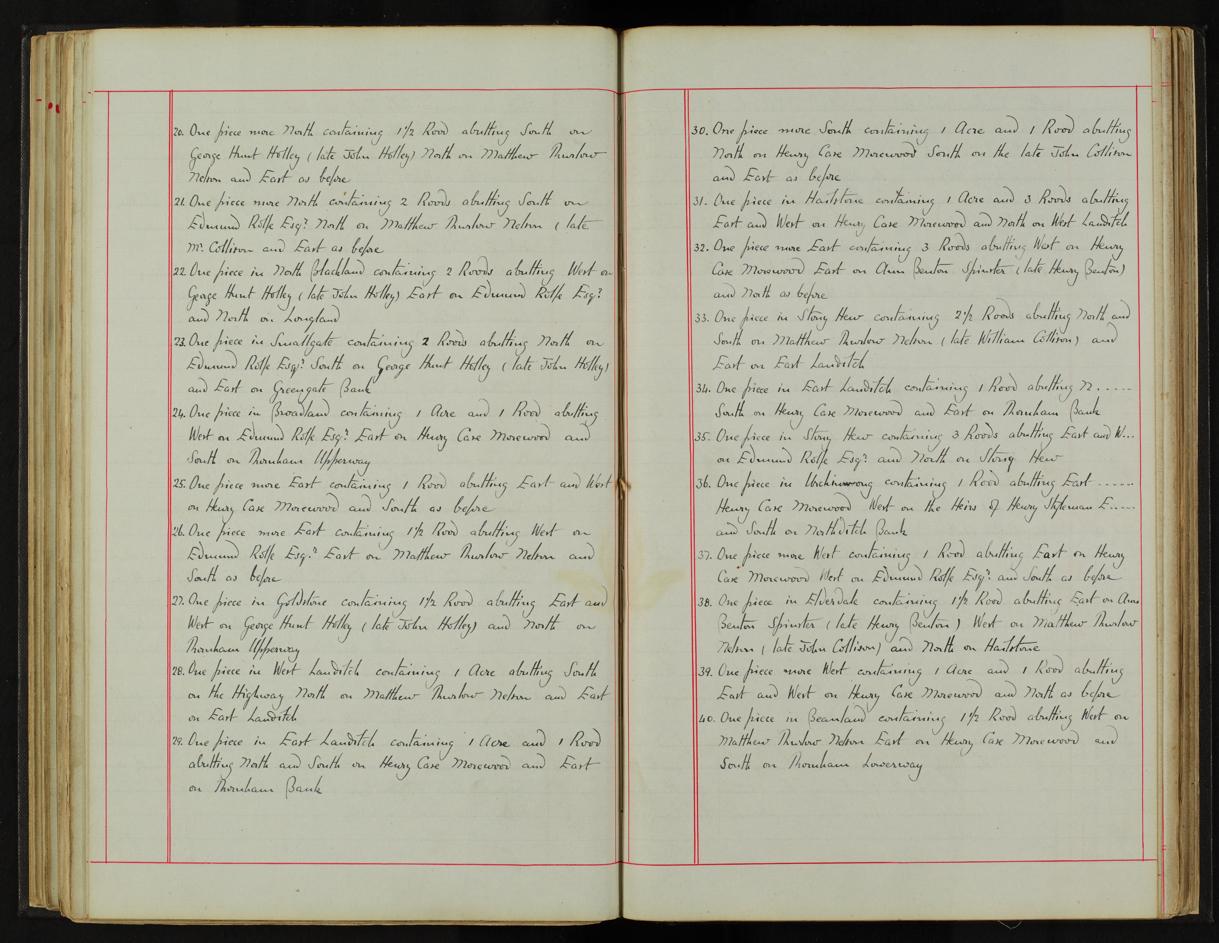 20. One piece more North containing 1 1/2 Rood abutting South on
George Hunt Holley (late John Holley) North on Matthew Thurlow
Nelson and East as before
21. One piece more North containing 2 Roods abutting South on
Edmund Rolfe Esqr. North on Matthew Thurlow Nelson (late
Mr. Collison and East as before
22. One piece in North Blackland containing 2 Roods abutting West on
George Hunt Holley (late John Holley) East on Edmund Rolfe Esqr.
and North on Longland
23. One piece in Smallgate containing 2 Roods abutting North on
Edmund Rolfe Esqr. South on George Hunt Holley (late John Holley)
and East on Greengate Bank
24. One piece in Broadland containing 1 Acre and 1 Rood abutting
West on Edmund Rolfe Esqr. East on Henry Case Morewood and
South on Thornham Upperway
25. One piece more East containing 1 Rood abutting East and West
on Henry Case Morewood and South as before
26. One piece more East containing 1 1/2 Rood abutting West on
Edmund Rolfe Esqr. East on Matthew Thurlow Nelson and
South as before
27. One piece in Goldstone containing 1 1/2 Rood abutting East and
West on George Hunt Holley (late John Holley) and North on
Thornham Upperway
28. One piece in West Landitch containing 1 Acre abutting South
on the Highway North on Matthew Thurlow Nelson and East
on East Landitch
29. One piece in East Landitch containing 1 Acre and 1 Rood
abutting North and South on Henry Case Morewood and East
on Thornham Bank
30. One piece more South containing 1 Acre and 1 Rood abutting
North on Henry Case Morewood South on the late John Collison
and East as before
31. One piece in Hailstone containing 1 Acre and 3 Roods abutting
East and West on Henry Case Morewood and North on West Landitch
32. One piece more East containing 3 Roods abutting West on Henry
Case Morewood East on Ann Benton Spinster (late Henry Benton)
and North as before
33. One piece in Stony Hew containing 2 1/2 Roods abutting North and
South on Matthew Thurlow Nelson (late William Collison) and
East on East Landitch
34. One piece in East Landitch containing 1 Rood abutting N.....
South on Henry Case Morewood and East on Thornham Bank
35. One piece in Stony Hew containing 3 Roods abutting East and W...
on Edmund Rolfe Esqr. and North on Stony Hew
36. One piece in containing 1 Rood abutting East ......
Henry Case Morewood West on the Heirs of Henry Styleman E.....
and South on Northditch Bank
37. One piece more West containing 1 Rood abutting East on Henry
Case Morewood West on Edmund Rolfe Esqr. and South as before
38. One piece in Elverdale containing 1 1/2 Rood abutting East on Ann
Benton Spinster (late Henry Benton) West on Matthew Thurlow
Nelson (late John Collison) and North on Hailstone
39. One piece more West containing 1 Acre and 1 Rood abutting
East and West on Henry Case Morewood and North as before
40. One piece in Beanland containing 1 1/2 Rood abutting West on
Matthew Thurlow Nelson East on Henry Case Morewood and
South on Thornham Lowerway